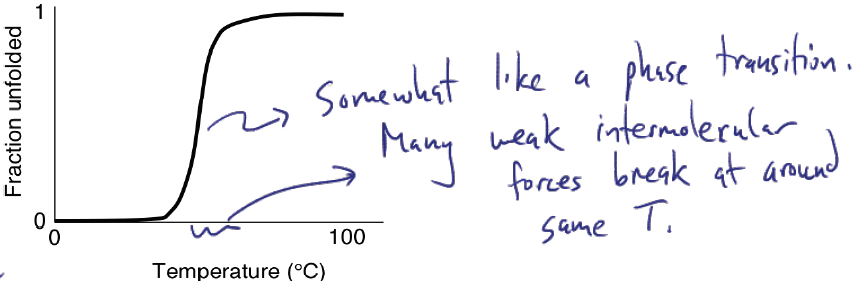 1
Fraction unfolded
0
0
100
Temperature (°C)
Somewhat like a phase transition.
Many weak intermolecular
forces break at around
same T.